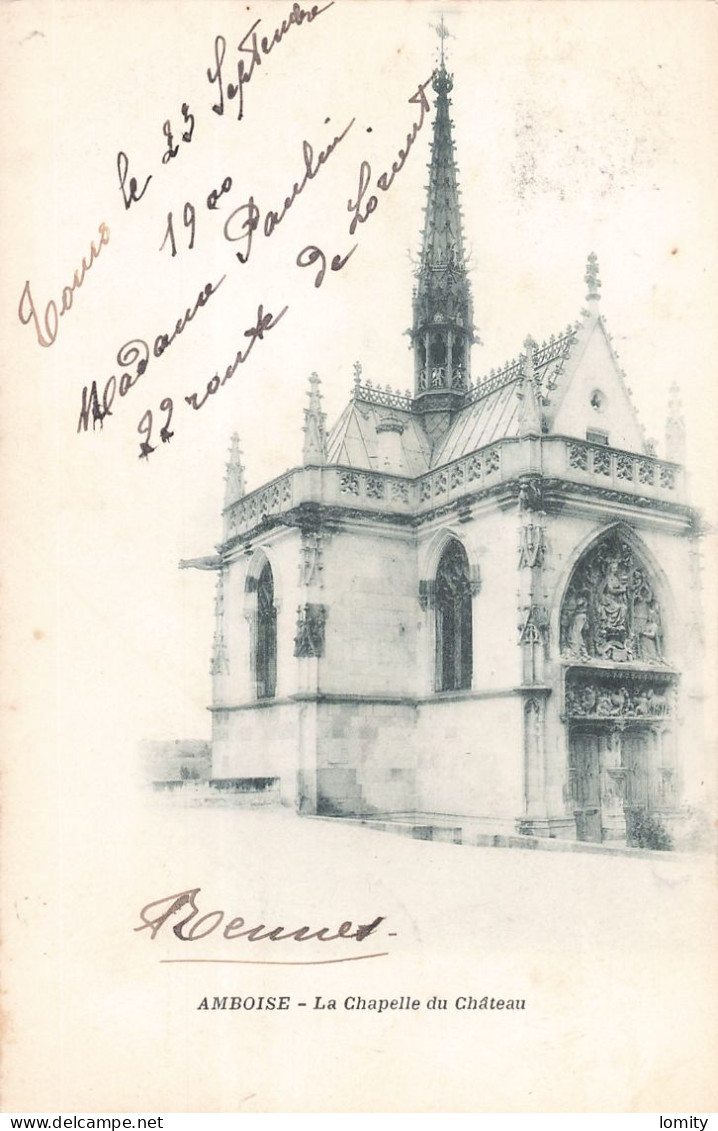 Tours le 23 Septembre
1900
Madame Paulin.
22 route de Lorient
Rennes
AMBOISE - La Chapelle du Château
delcampe.net
lomity